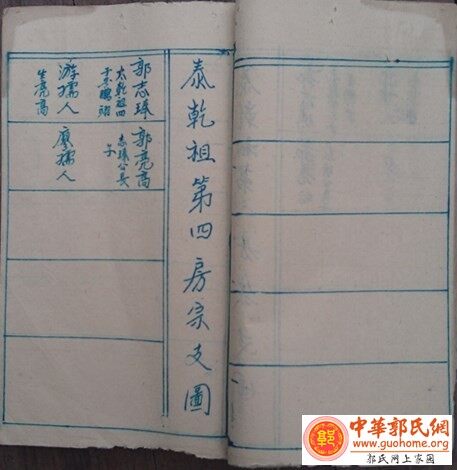 泰乾祖第四房宗支圖
郭志瑤
太乾祖四
游孺人
生亮高
郭亮高
志瑤公長
子
廖孺人
中華郭氏網
www.guohome.org
郭氏网上家园